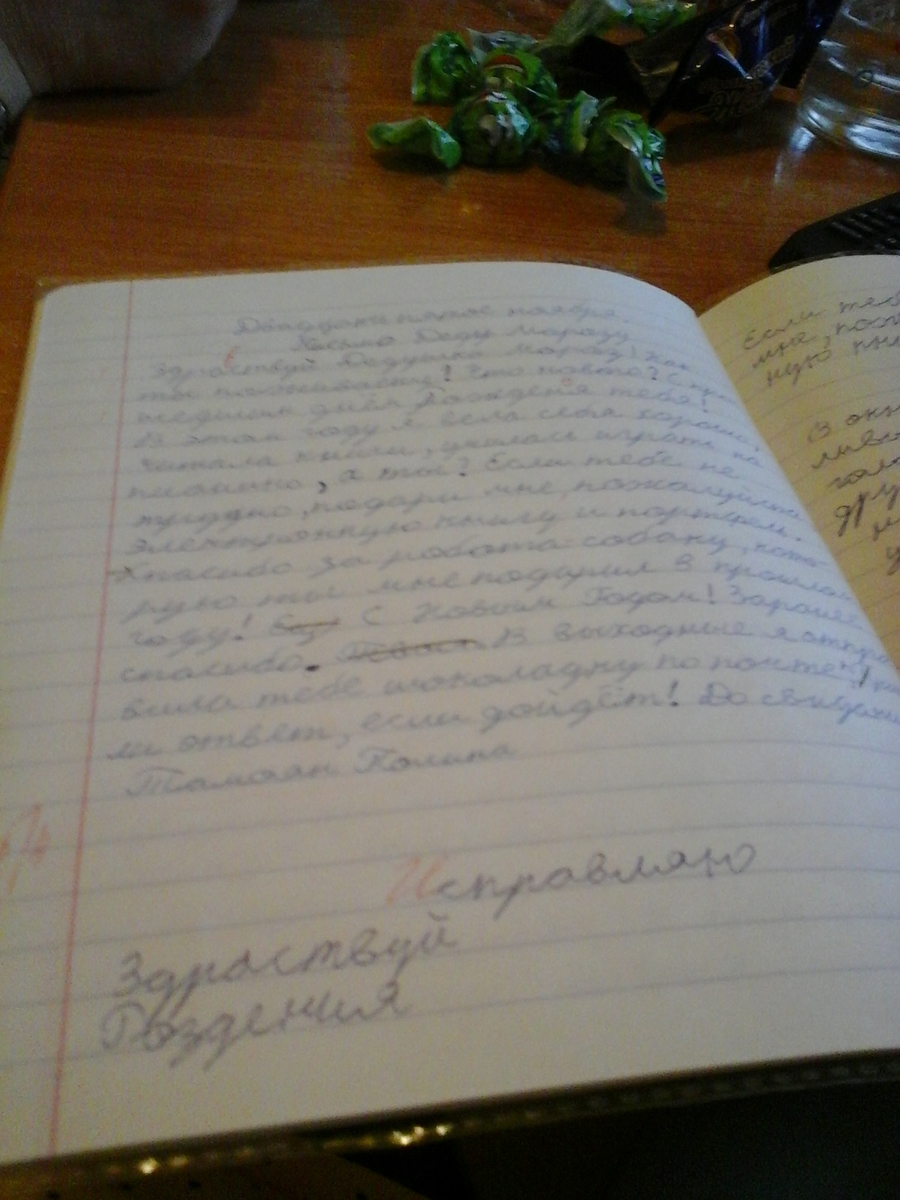 Двадцать пятое ноября.
Письмо Деду Морозу
Здраствуй Дедушка Мороз! Как
ты поживаешь! Что нового? С про
шедшим днём рожденя тебя!
В этом году я вела себя хорошо,
читала книги, училась играть на
пианино, а ты? Если тебе не
трудно, подари мне, пожалуйста
электронную книгу и портфель.
Спасибо за робота-собаку, кото
рую ты мне подарил в прошлом
году! С Новым Годом! Заранее
спасибо. В выходные я отпра
вила тебе шоколадку по почте,
ли ответ, если дойдёт! До свидания
Тамоян Полина
Исправляю
Здраствуй
Рождения
Если теб
мне, пож
ную кни
В окн